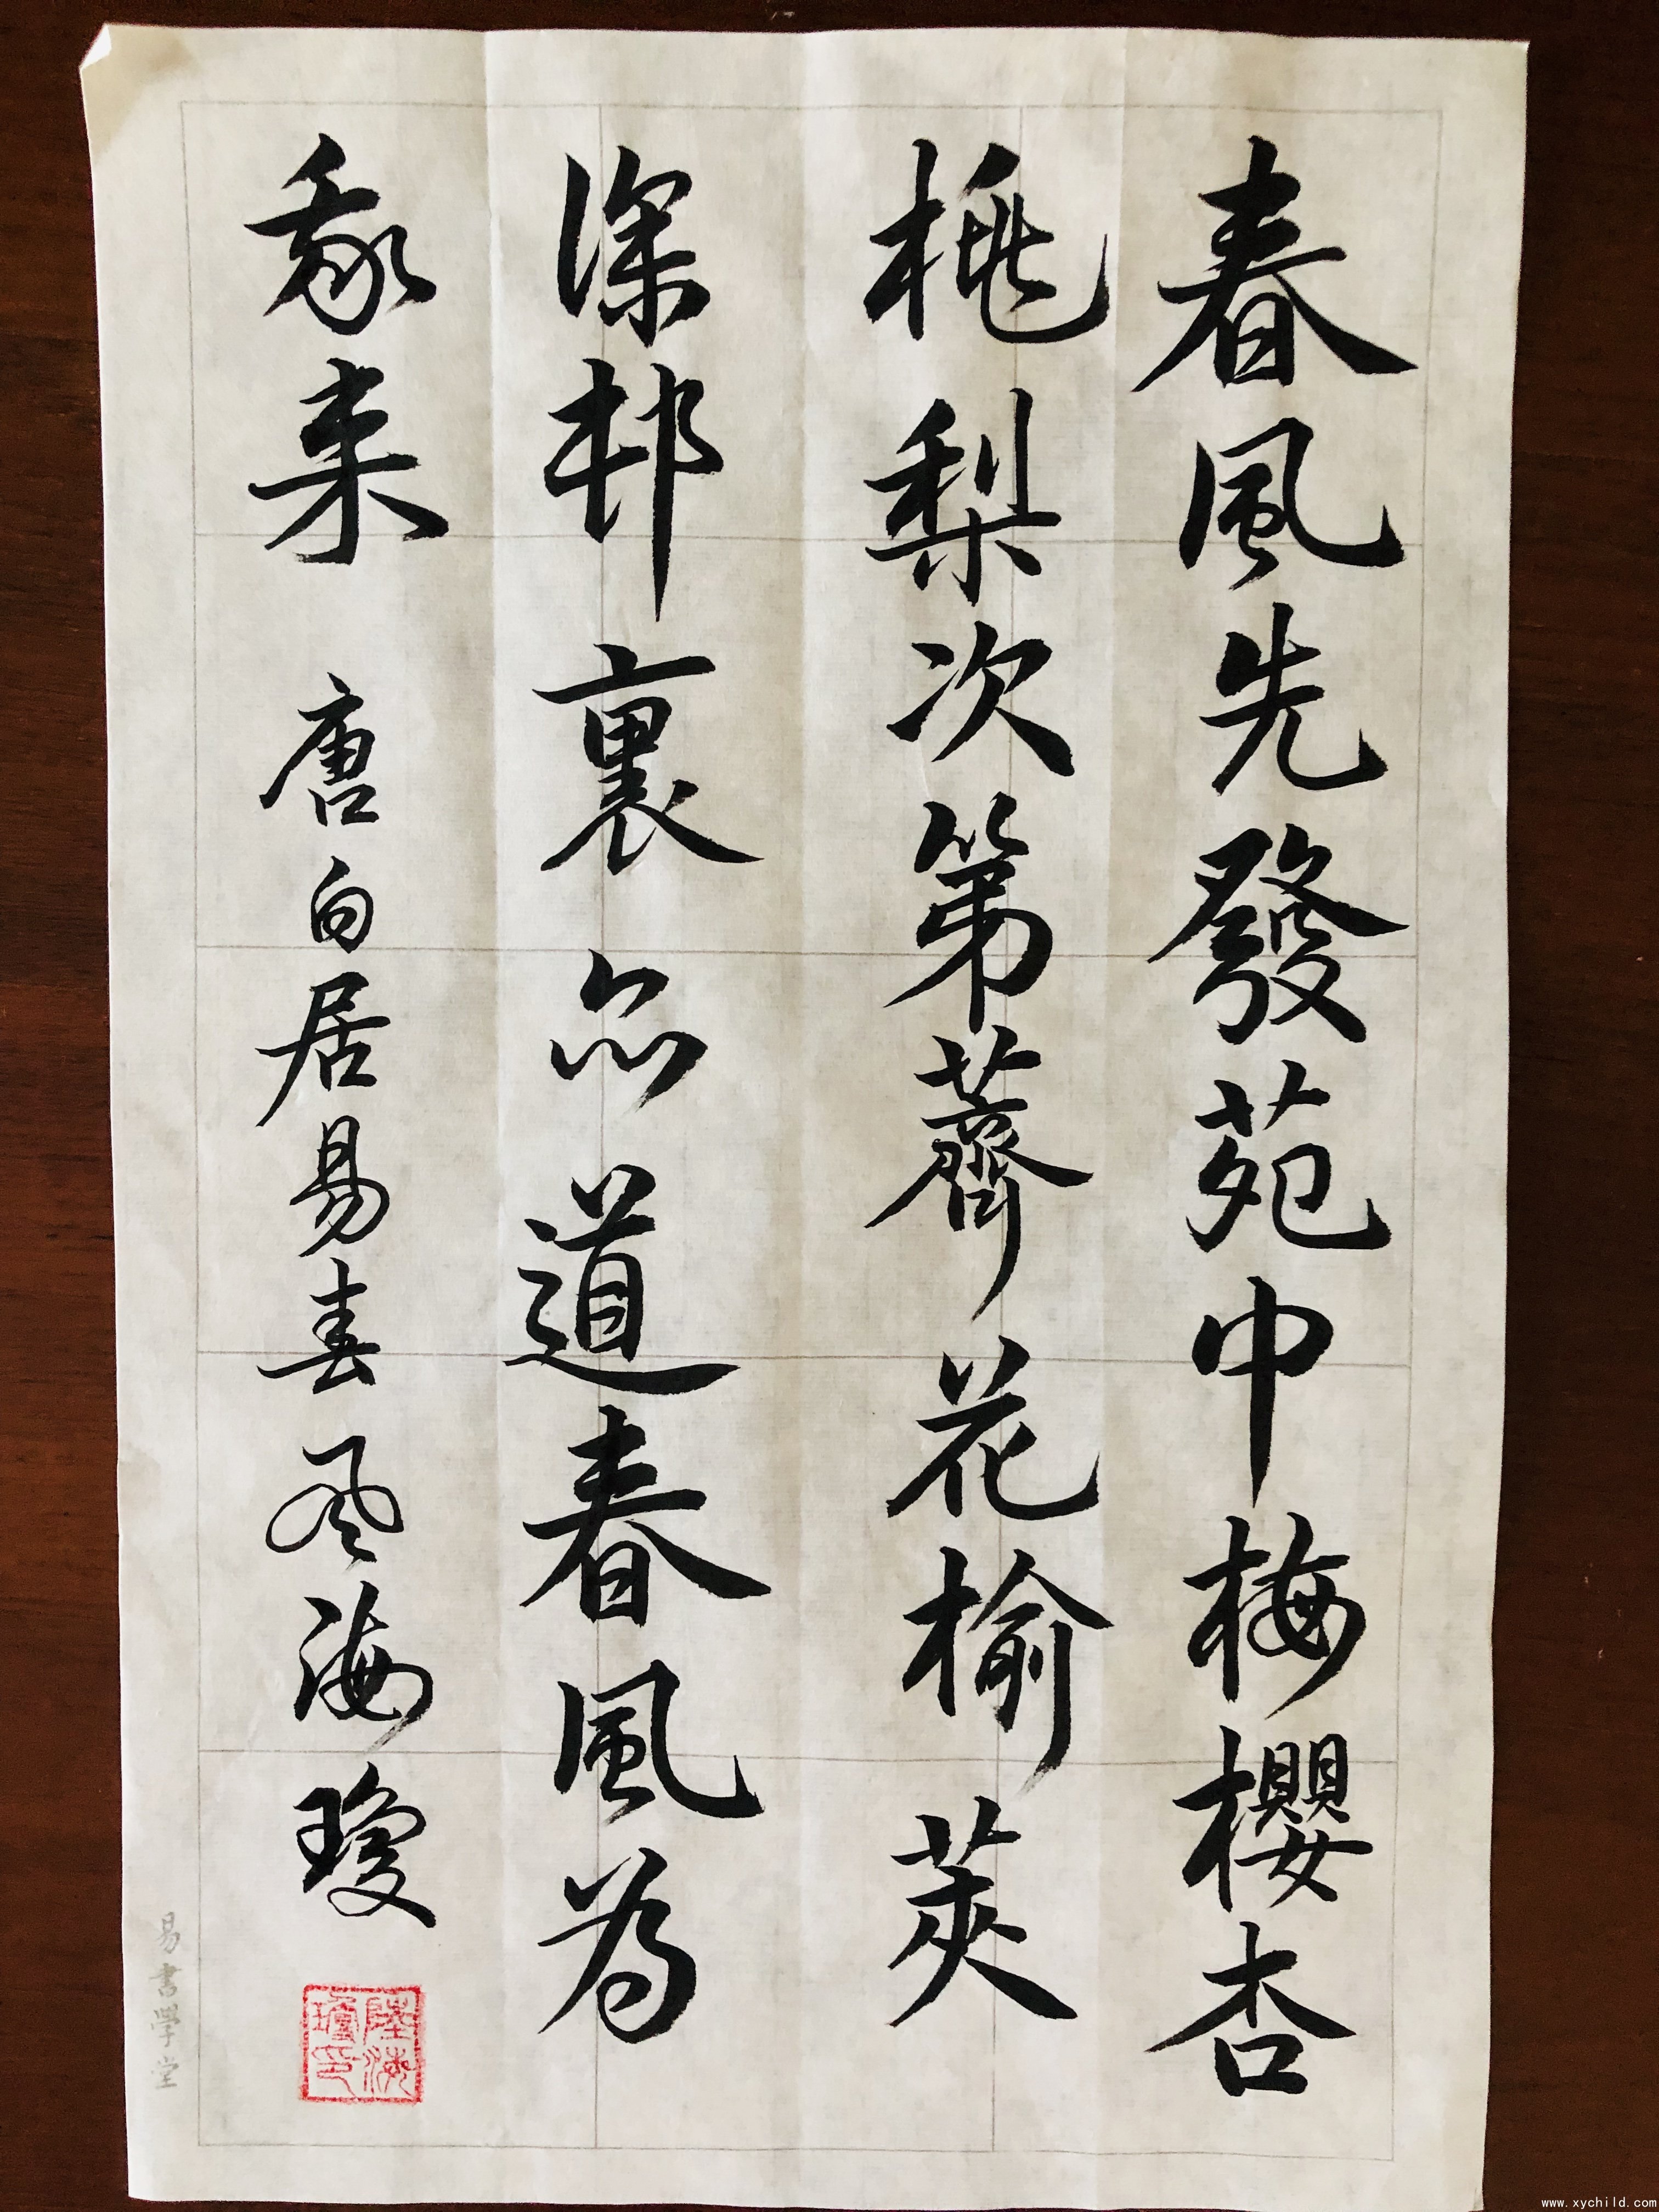 春風先發苑中梅櫻杏
桃梨次第薺花榆莢
深邨裏亦道春風為
我来 唐白居易春风海瓊
陸海瓊印
易書學堂
www.xychild.com